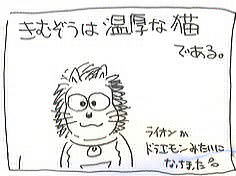 きむぞうは温厚な猫
である。
ライオンか
ドラエモンみたいに
なけました。